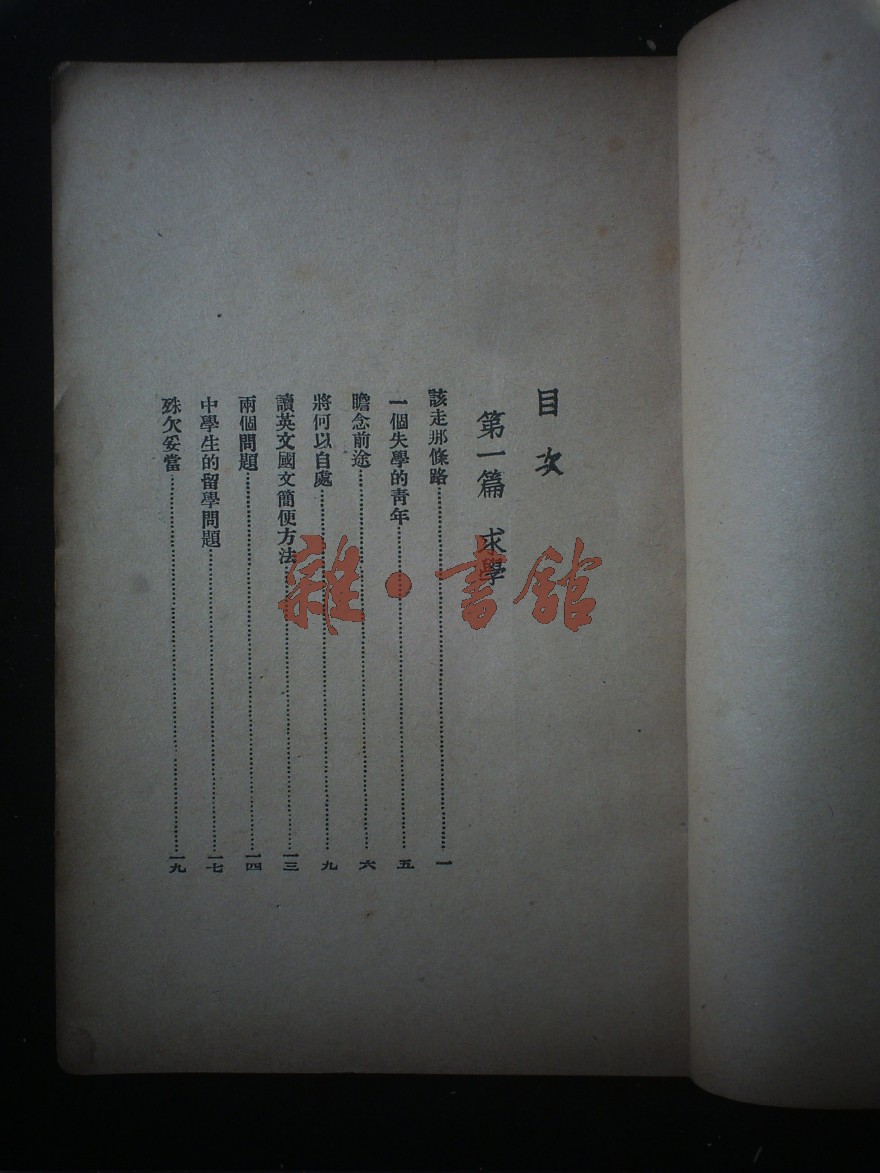 目次
第一篇 求學
該走那條路…………一
一個失學的青年…………五
瞻念前途…………六
將何以自處…………九
讀英文國文簡便方法…………一三
兩個問題…………一四
中學生的留學問題…………一七
殊欠妥當…………一九
雜·書館